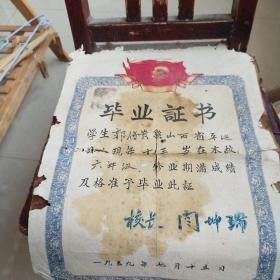 毕业証书
学生郭俗贵系山西省平遥
县人现年十八岁在本校
六班级修业期满成绩
及格准予毕业此証
校长 闫坤瑞
一九五九年七月十五日